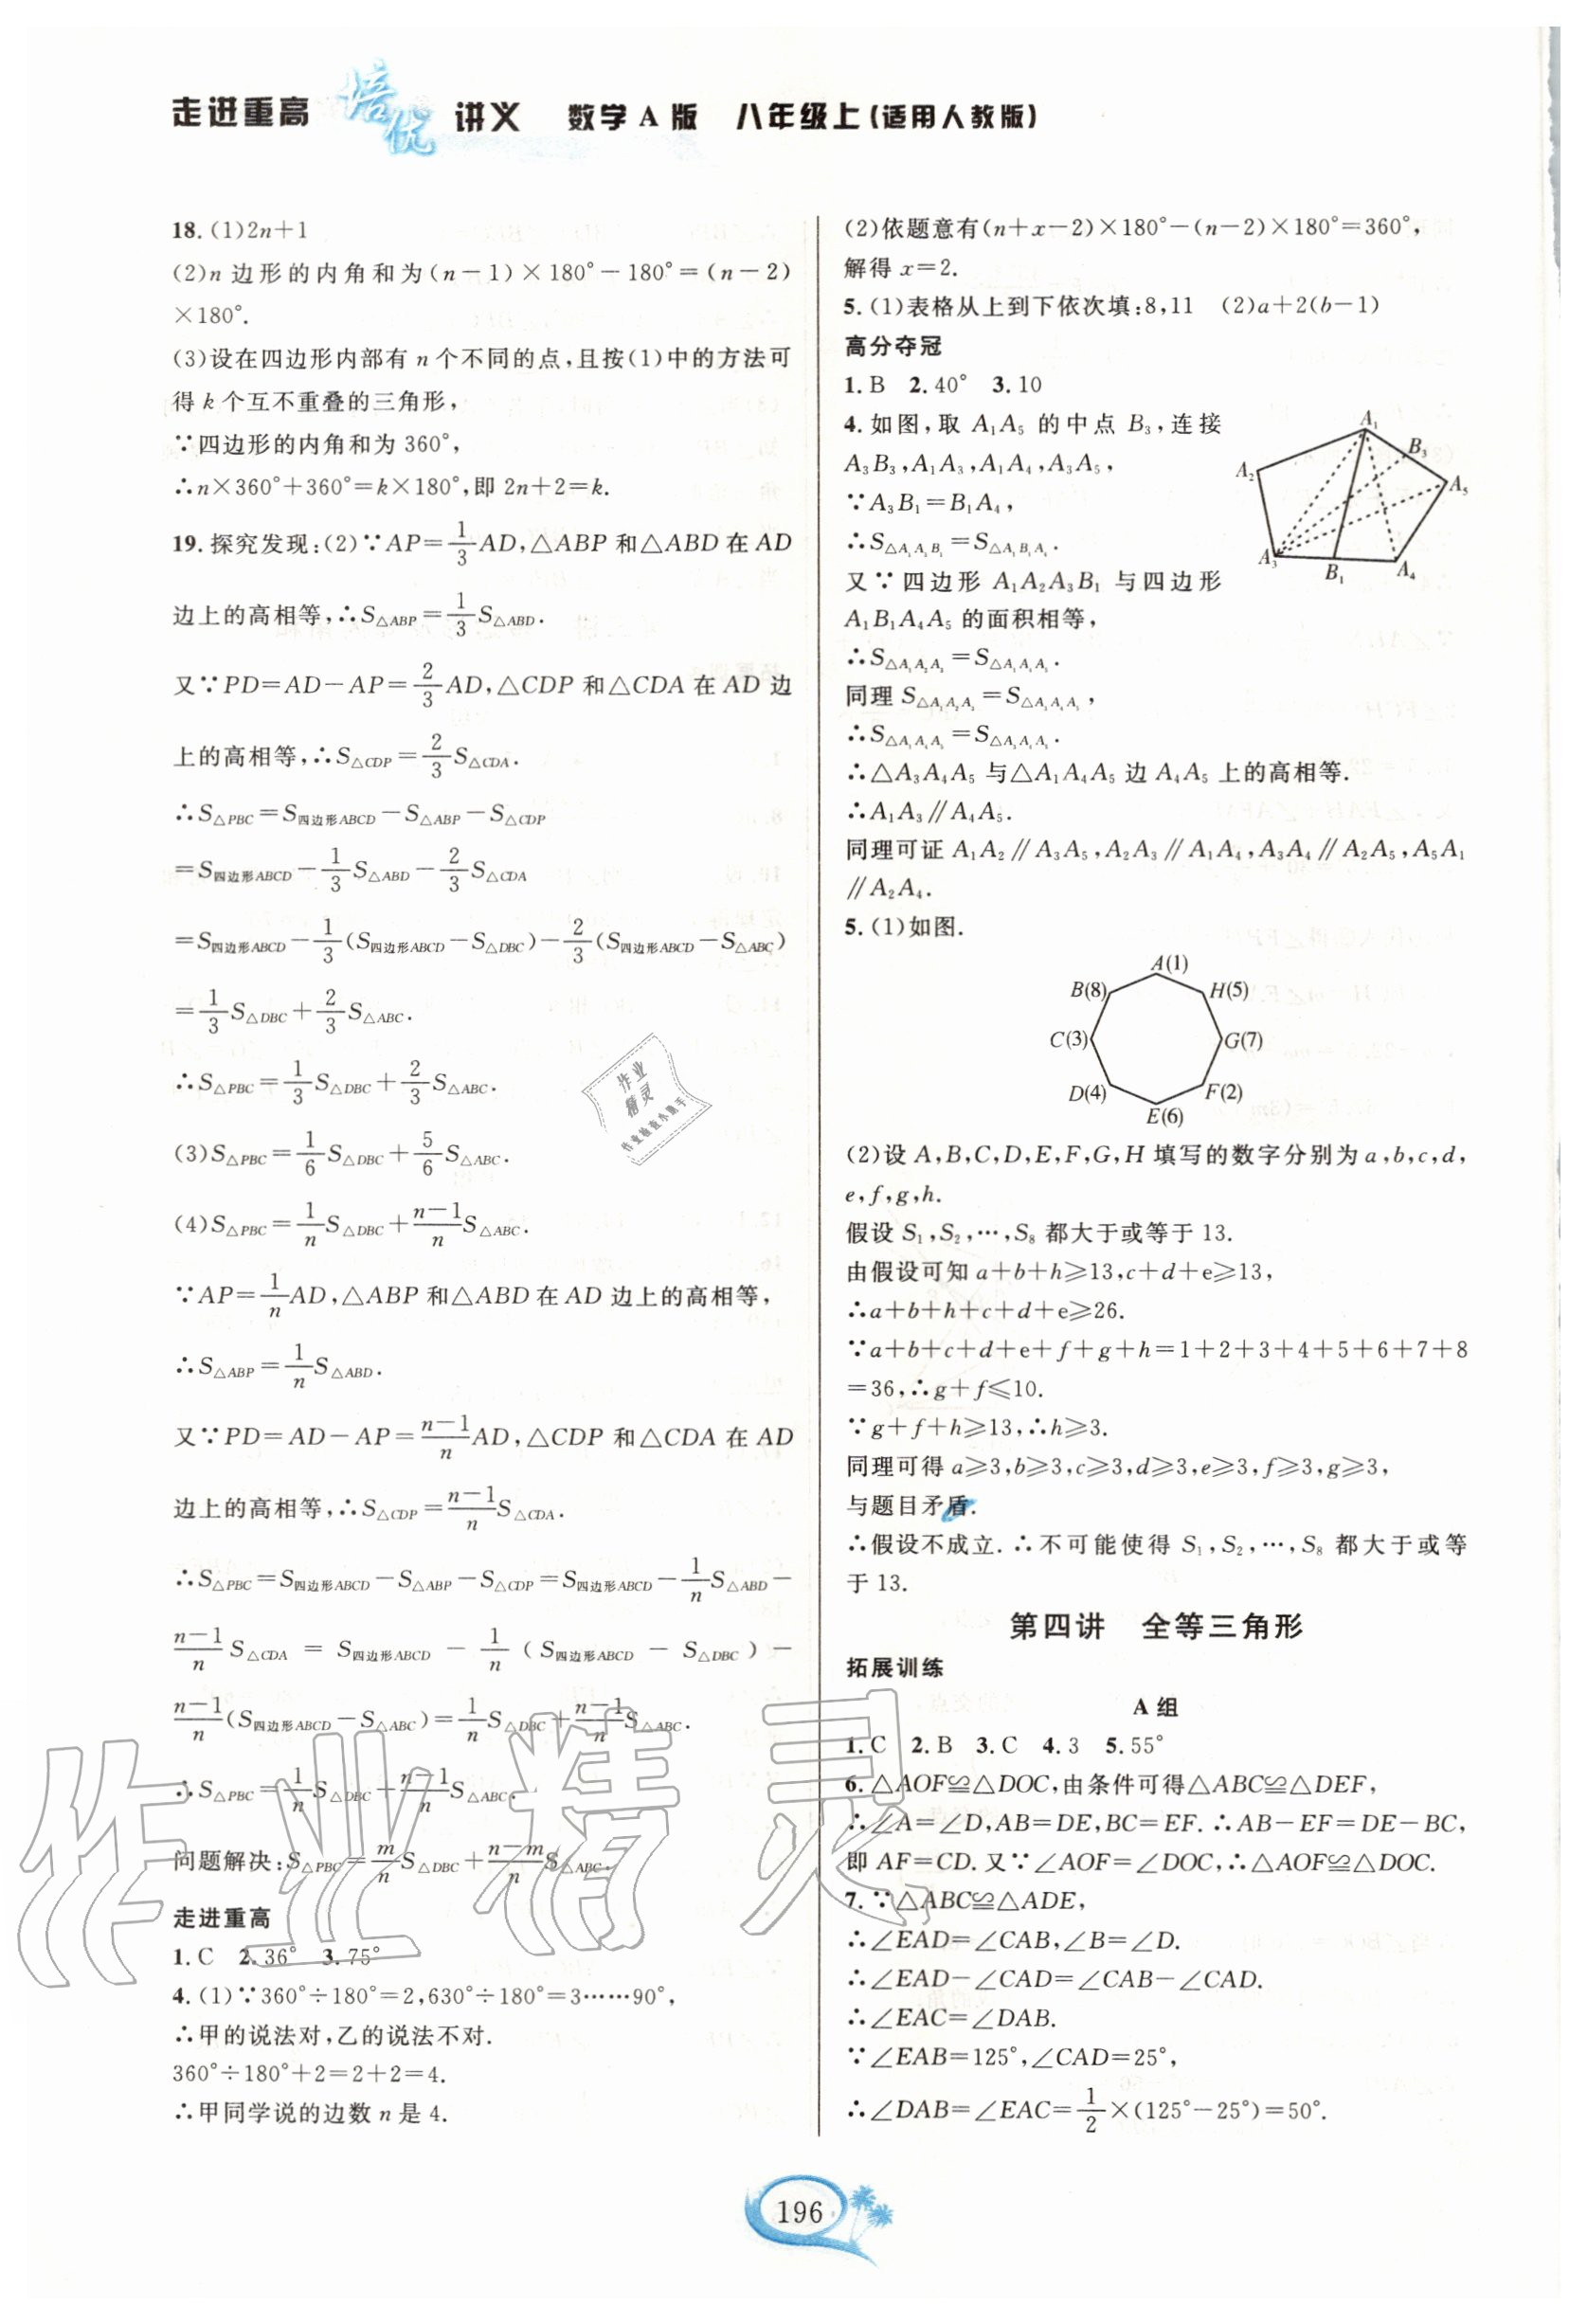 走进重高 培优 讲义 数学A版 八年级上(适用人教版)
18. (1)2n+1
(2)n 边形的内角和为(n-1)×180°-180°=(n-2)
×180°.
(3)设在四边形内部有 n 个不同的点,且按(1)中的方法可
得 k 个互不重叠的三角形,
∵四边形的内角和为 360°,
∴n×360°+360°=k×180°,即 2n+2=k.
19. 探究发现:(2)∵AP=1/3AD,△ABP 和△ABD 在 AD
边上的高相等,∴S△ABP=1/3S△ABD.
又∵PD=AD-AP=2/3AD,△CDP 和△CDA 在 AD 边
上的高相等,∴S△CDP=2/3S△CDA.
∴S△PBC=S四边形ABCD-S△ABP-S△CDP
=S四边形ABCD-1/3S△ABD-2/3S△CDA
=S四边形ABCD-1/3(S四边形ABCD-S△DBC)-2/3(S四边形ABCD-S△ABC)
=1/3S△DBC+2/3S△ABC.
∴S△PBC=1/3S△DBC+2/3S△ABC.
(3)S△PBC=1/6S△DBC+5/6S△ABC.
(4)S△PBC=1/nS△DBC+(n-1)/nS△ABC.
∵AP=1/nAD,△ABP 和△ABD 在 AD 边上的高相等,
∴S△ABP=1/nS△ABD.
又∵PD=AD-AP=(n-1)/nAD,△CDP 和△CDA 在 AD
边上的高相等,∴S△CDP=(n-1)/nS△CDA.
∴S△PBC=S四边形ABCD-S△ABP-S△CDP=S四边形ABCD-1/nS△ABD-
(n-1)/nS△CDA=S四边形ABCD-1/n(S四边形ABCD-S△DBC)-
(n-1)/n(S四边形ABCD-S△ABC)=1/nS△DBC+(n-1)/nS△ABC.
∴S△PBC=1/nS△DBC+(n-1)/nS△ABC.
问题解决:S△PBC=m/nS△DBC+(n-m)/nS△ABC.
走进重高
1. C 2. 36° 3. 75°
4. (1)∵360°÷180°=2,630°÷180°=3……90°,
∴甲的说法对,乙的说法不对.
360°÷180°+2=2+2=4.
∴甲同学说的边数 n 是 4.
(2)依题意有(n+x-2)×180°-(n-2)×180°=360°,
解得 x=2.
5. (1)表格从上到下依次填:8,11 (2)a+2(b-1)
高分夺冠
1. B 2. 40° 3. 10
4. 如图,取 A₁A₅ 的中点 B₃,连接
A₃B₃,A₁A₃,A₁A₄,A₃A₅,
∵A₃B₁=B₁A₄,
A₁
B₃
A₂
A₅
A₃
B₁
A₄
又∵四边形 A₁A₂A₃B₁ 与四边形
A₁B₁A₄A₅ 的面积相等,
∴△A₃A₄A₅ 与△A₁A₄A₅ 边 A₄A₅ 上的高相等.
∴A₁A₃∥A₄A₅.
同理可证 A₁A₂∥A₃A₅,A₂A₃∥A₁A₄,A₃A₄∥A₂A₅,A₅A₁
∥A₂A₄.
5. (1)如图.
A(1)
B(8)
H(5)
C(3)
G(7)
D(4)
F(2)
E(6)
(2)设 A,B,C,D,E,F,G,H 填写的数字分别为 a,b,c,d,
e,f,g,h.
假设 S₁,S₂,…,S₈ 都大于或等于 13.
由假设可知 a+b+h≥13,c+d+e≥13,
∴a+b+h+c+d+e≥26.
∵a+b+c+d+e+f+g+h=1+2+3+4+5+6+7+8
=36,∴g+f≤10.
∵g+f+h≥13,∴h≥3.
同理可得 a≥3,b≥3,c≥3,d≥3,e≥3,f≥3,g≥3,
与题目矛盾.
∴假设不成立.∴不可能使得 S₁,S₂,…,S₈ 都大于或等
于 13.
第四讲 全等三角形
拓展训练
A 组
1. C 2. B 3. C 4. 3 5. 55°
6. △AOF≌△DOC,由条件可得△ABC≌△DEF,
∴∠A=∠D,AB=DE,BC=EF.∴AB-EF=DE-BC,
即 AF=CD.又∵∠AOF=∠DOC,∴△AOF≌△DOC.
7. ∵△ABC≌△ADE,
∴∠EAD=∠CAB,∠B=∠D.
∴∠EAD-∠CAD=∠CAB-∠CAD.
∴∠EAC=∠DAB.
∵∠EAB=125°,∠CAD=25°,
∴∠DAB=∠EAC=1/2×(125°-25°)=50°.
作业
精灵
作业检查小助手
作业精灵
196